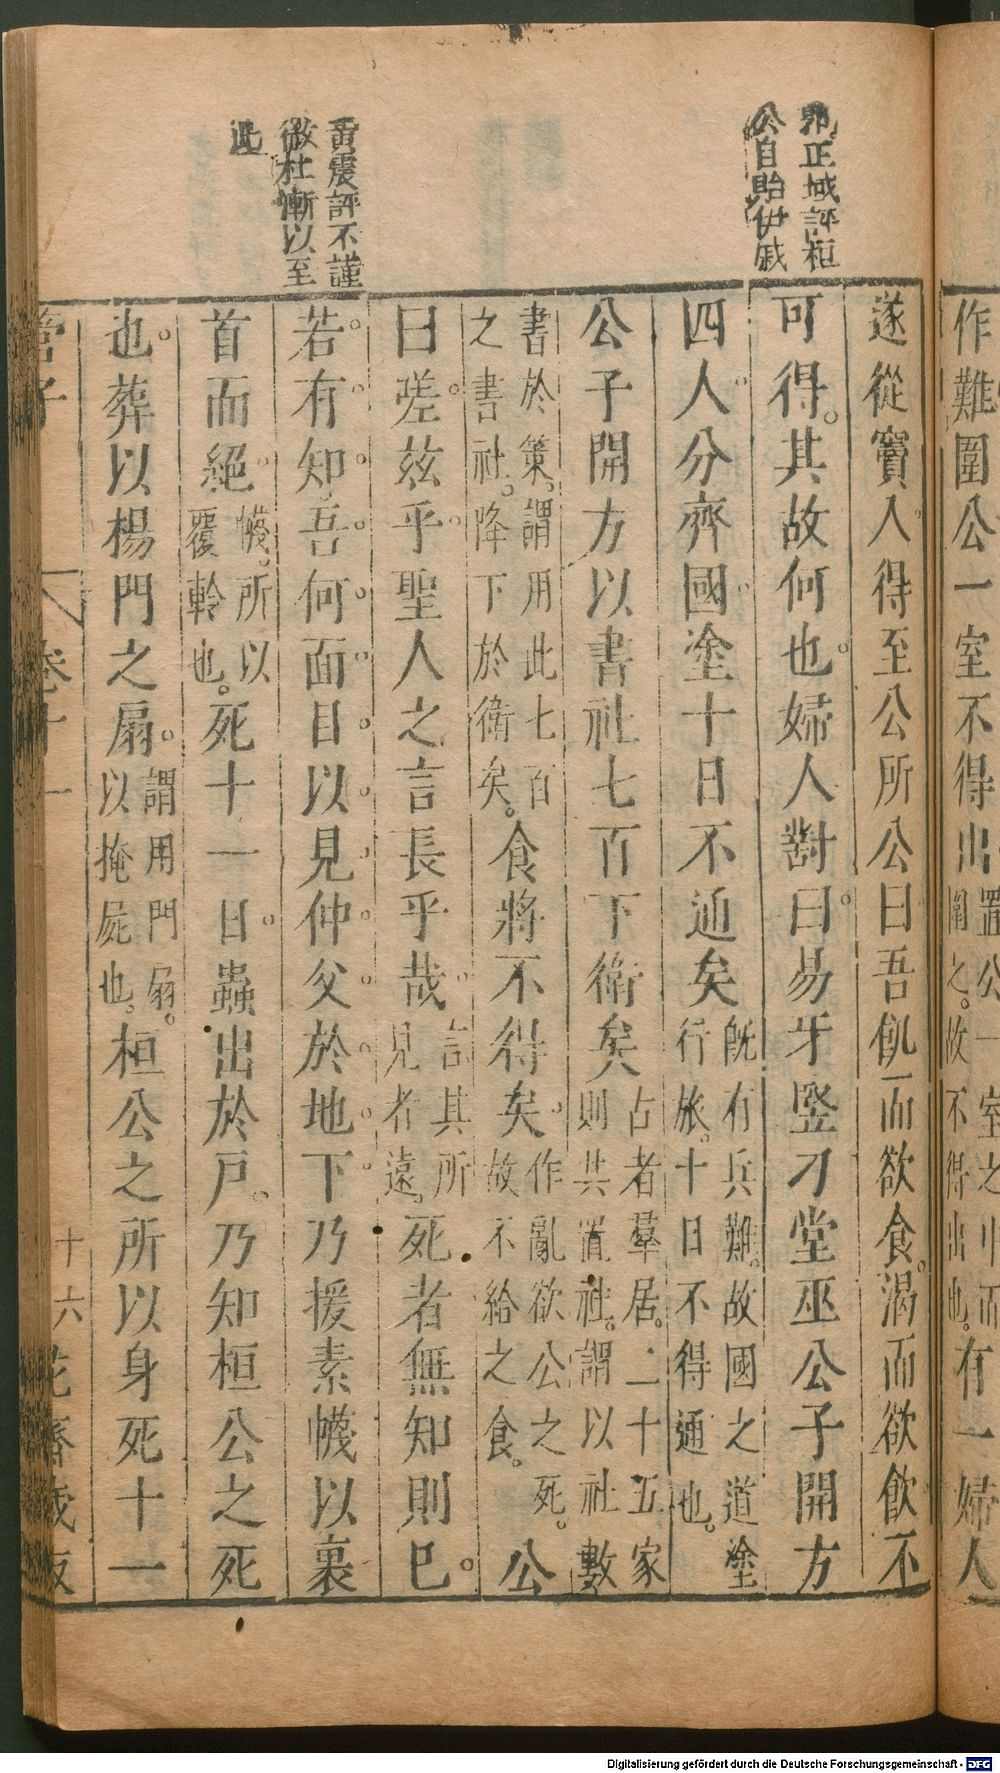 作難圍公一室不得出置公一室之中而圍之。故不得出也。有一婦人
郭正域評桓
公自貽伊戚
遂從竇入得至公所公曰吾飢而欲食。渴而欲飲不
可得。其故何也。婦人對曰。易牙豎刁堂巫公子開方
四人。分齊國。塗十日不通矣旣有兵難。故國之道塗行旅。十日不得通也。
公子開方以書社七百下衛矣古者羣居。二十五家則共置社。謂以社數
書於策。謂用此七百之書社。降下於衛矣。食將不得矣。作亂欲公之死。故不給之食。公
曰嗟。茲乎。聖人之言長乎哉。言其所見者遠。死者無知則已。
黃震評不謹
微杜漸以至
此
若有知吾何面目以見仲父於地下乃援素幭以裹
首而絕。幭。所以覆軨也。死十一日。蟲出於戶。乃知桓公之死
也。葬以楊門之扇。謂用門扇。以掩屍也。桓公之所以身死十一
管子 卷十一 十六 花齋藏板
Digitalisierung gefördert durch die Deutsche Forschungsgemeinschaft - DFG